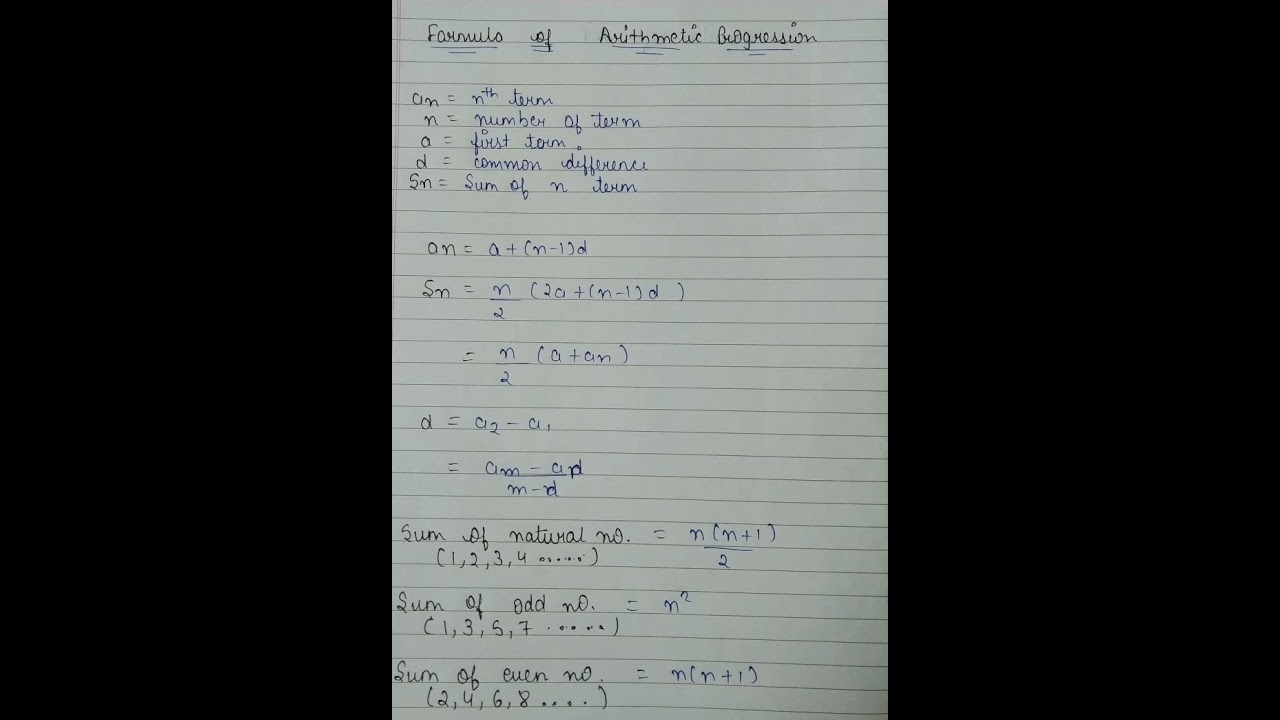 Farmula of Arithmetic Progression
an = nth term
n = number of term
a = first term.
d = common difference
Sn = Sum of n term
an = a+(n-1)d
Sn = n/2 (2a+(n-1)d )
= n/2 (a+an)
d = a2 - a1
= am - an / m-n
Sum of natural no. = n(n+1)/2
(1,2,3,4 ......)
Sum of odd no. = n²
(1,3,5,7 ......)
Sum of even no. = n(n+1)
(2,4,6,8 .....)